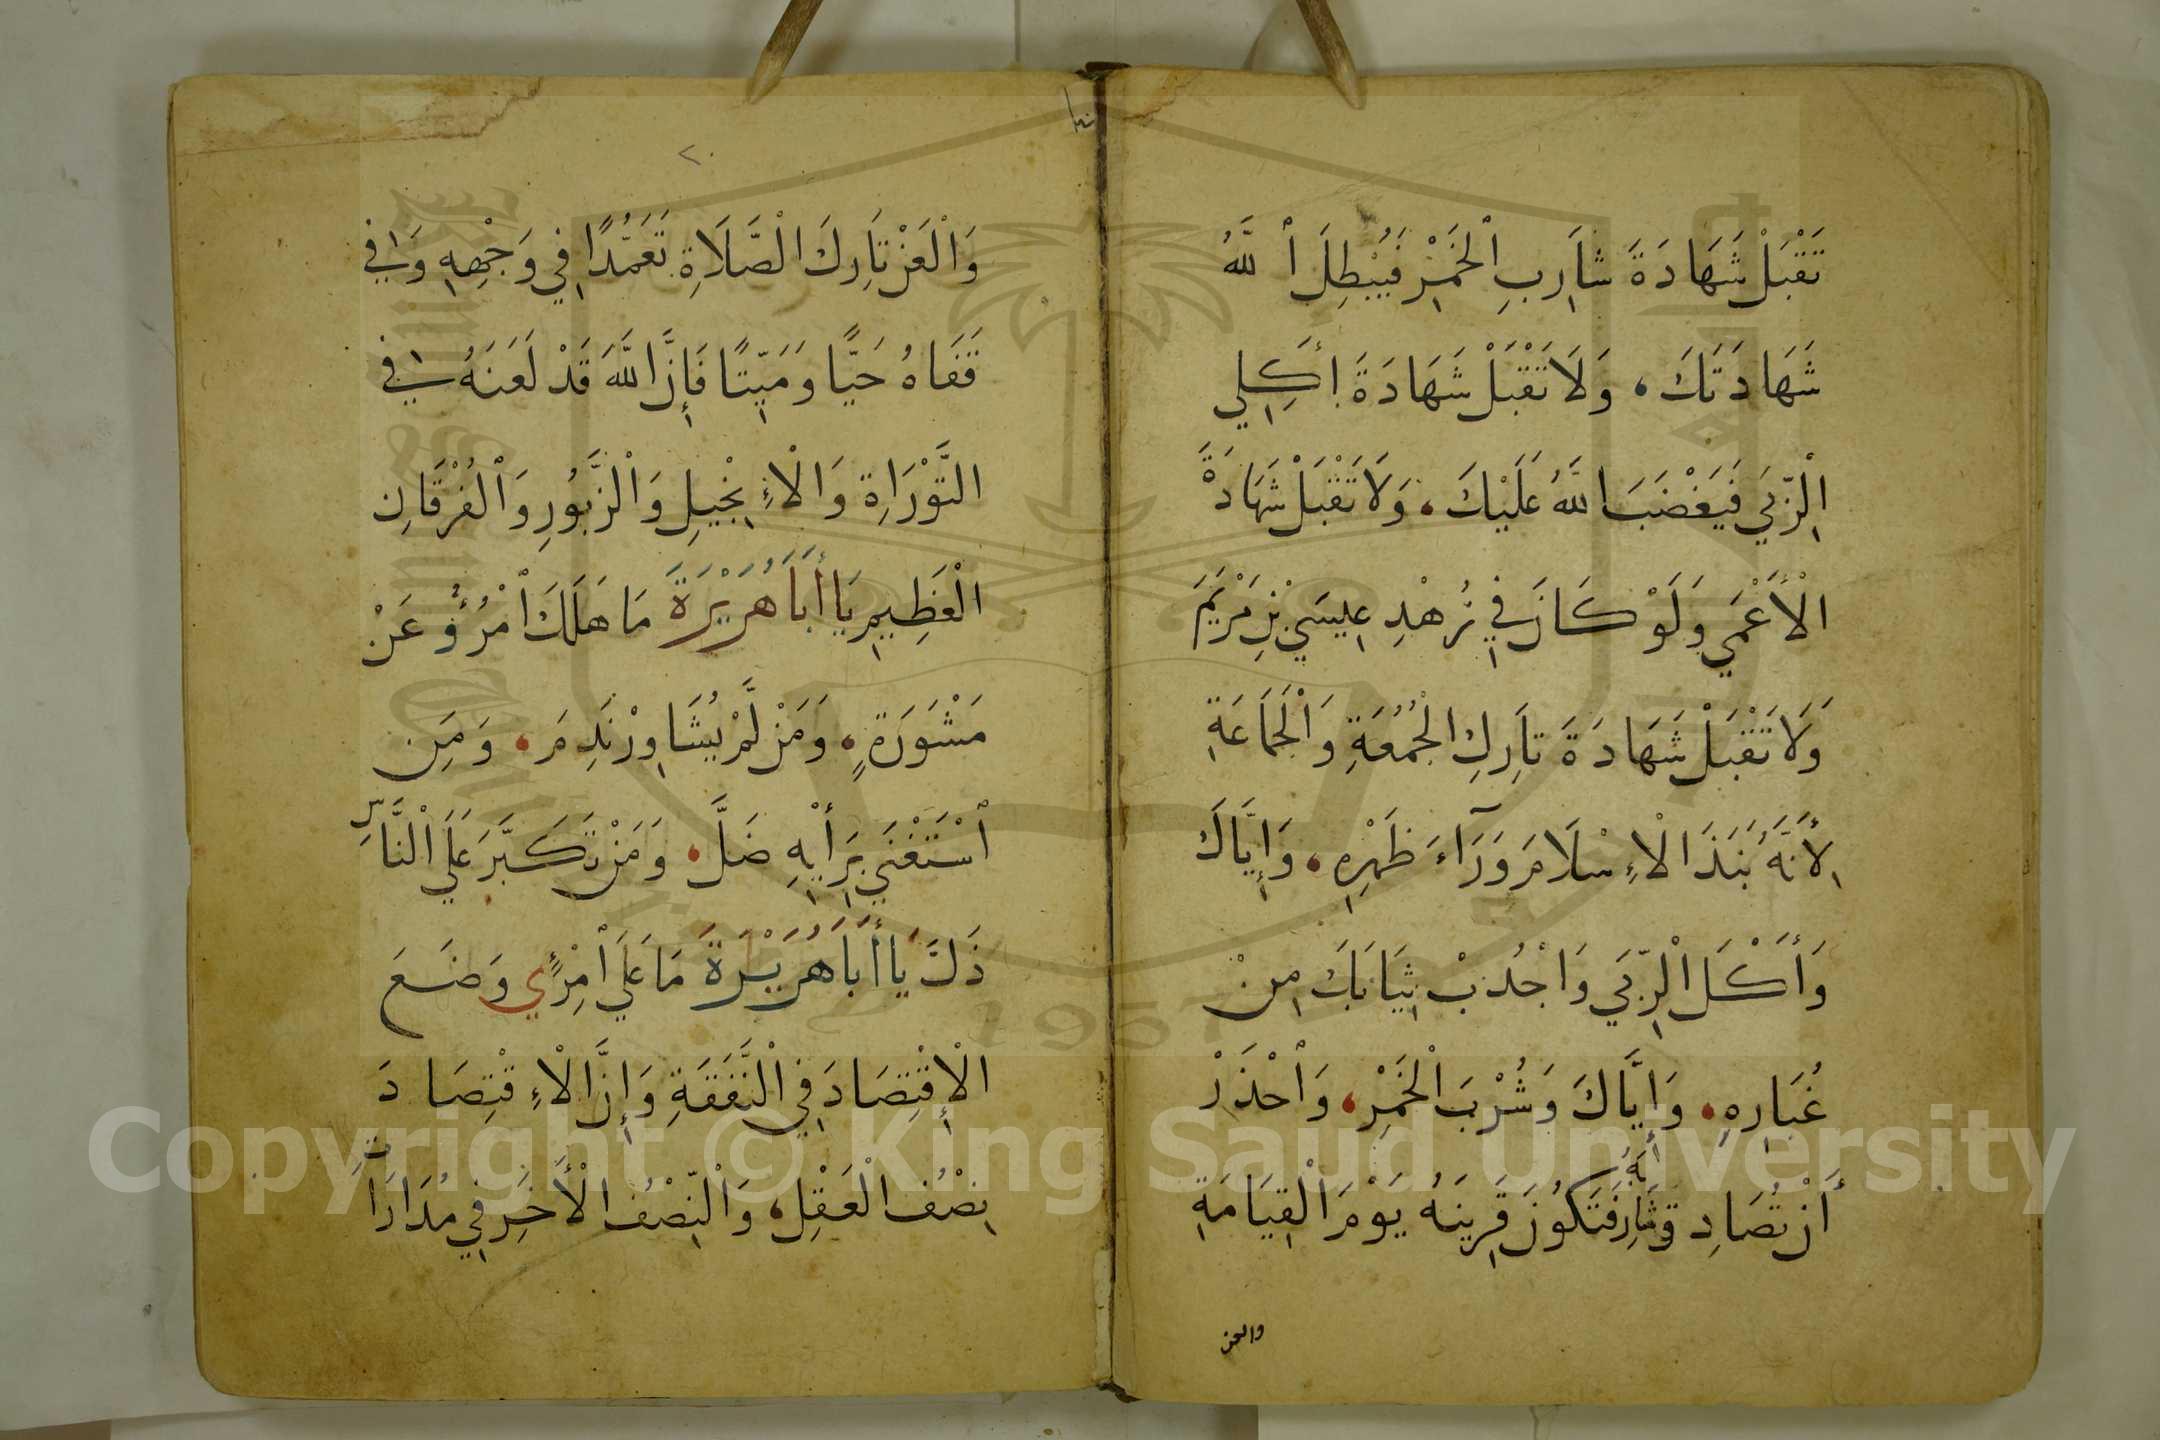 تَقْبَلْ شَهَادَةَ شَارِبِ ٱلْخَمْرِ فَيُبْطِلَ ٱللَّهُ
شَهَادَتَكَ، وَلَا تَقْبَلْ شَهَادَةَ أَكِلِي
الْرِّبَي فَيَغْضَبَ اللَّهُ عَلَيْكَ، وَلَا تَقْبَلْ شَهَادَةَ
الْأَعْمَي وَلَوْ كَانَ فِي زُهْدِ عِيسَيٰ بْنِ مَرْيَمَ
وَلَا تَقْبَلْ شَهَادَةَ تَارِكِ الْجُمُعَةِ وَٱلْجَمَاعَةِ
لِأَنَّهُ نَبَذَ الْإِسْلَامَ وَرَآءَ ظَهْرِهِ، وَإِيَّاكَ
وَأَكْلَ الْرِّبَي وَاجْذُبْ ثِيَابَكَ مِنْ
غُبَارِهِ، وَإِيَّاكَ وَشُرْبَ الْخَمْرِ، وَٱحْذَرْ
أَنْ تُصَادِقَ شَارِبَهُ فَتَكُونَ قَرِينَهُ يَوْمَ الْقِيَامَةِ
والعن
٢٠
وَالْعَنْ تَارِكَ الْصَّلَاةِ تَعَمُّدًا فِي وَجْهِهِ وَفِي
قَفَاهُ حَيًّا وَمَيِّتًا فَإِنَّ اللَّهَ قَدْ لَعَنَهُ فِي
التَّوْرَاةِ وَالْإِنْجِيلِ وَالْزَّبُورِ وَالْفُرْقَانِ
الْعَظِيمِ يَا أَبَا هُرَيْرَةَ مَا هَلَكَ ٱمْرُؤٌ عَنْ
مَشْوَرَةٍ، وَمَنْ لَمْ يُشَاوِرْ نَدِمَ، وَمَنِ
ٱسْتَغْنَي بِرَأْيِهِ ضَلَّ، وَمَنْ تَكَبَّرَ عَلَي الْنَّاسِ
ذَلَّ يَا أَبَا هُرَيْرَةَ مَا عَلَي ٱمْرِئٍ وَضَعَ
الْإِقْتِصَادَ فِي الْنَّفَقَةِ وَإِنَّ الْإِقْتِصَادَ
نِصْفُ الْعَقْلِ، وَالْنِّصْفُ الْأَخَرُ فِي مُدَارَاةِ
Copyright © King Saud University
1957